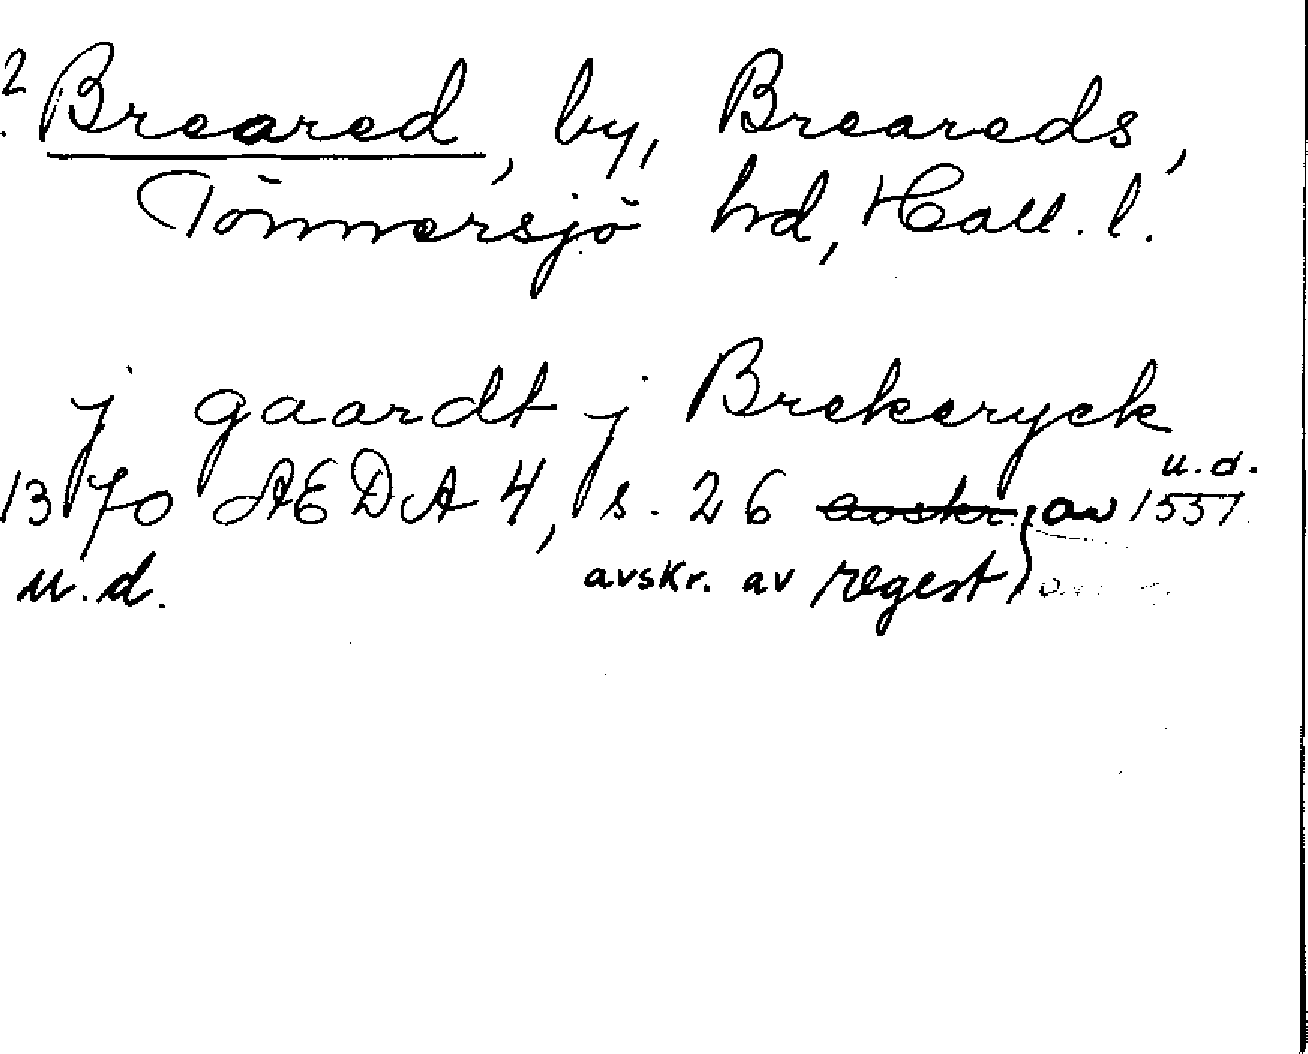 2 Breared, by, Breareds,
Tönnersjö hd, Hall. l.
j gaardt j Brekeryck
u.d.
1370 AEDA 4, s. 26 avskr. av 1551
u.d. avskr. av regest